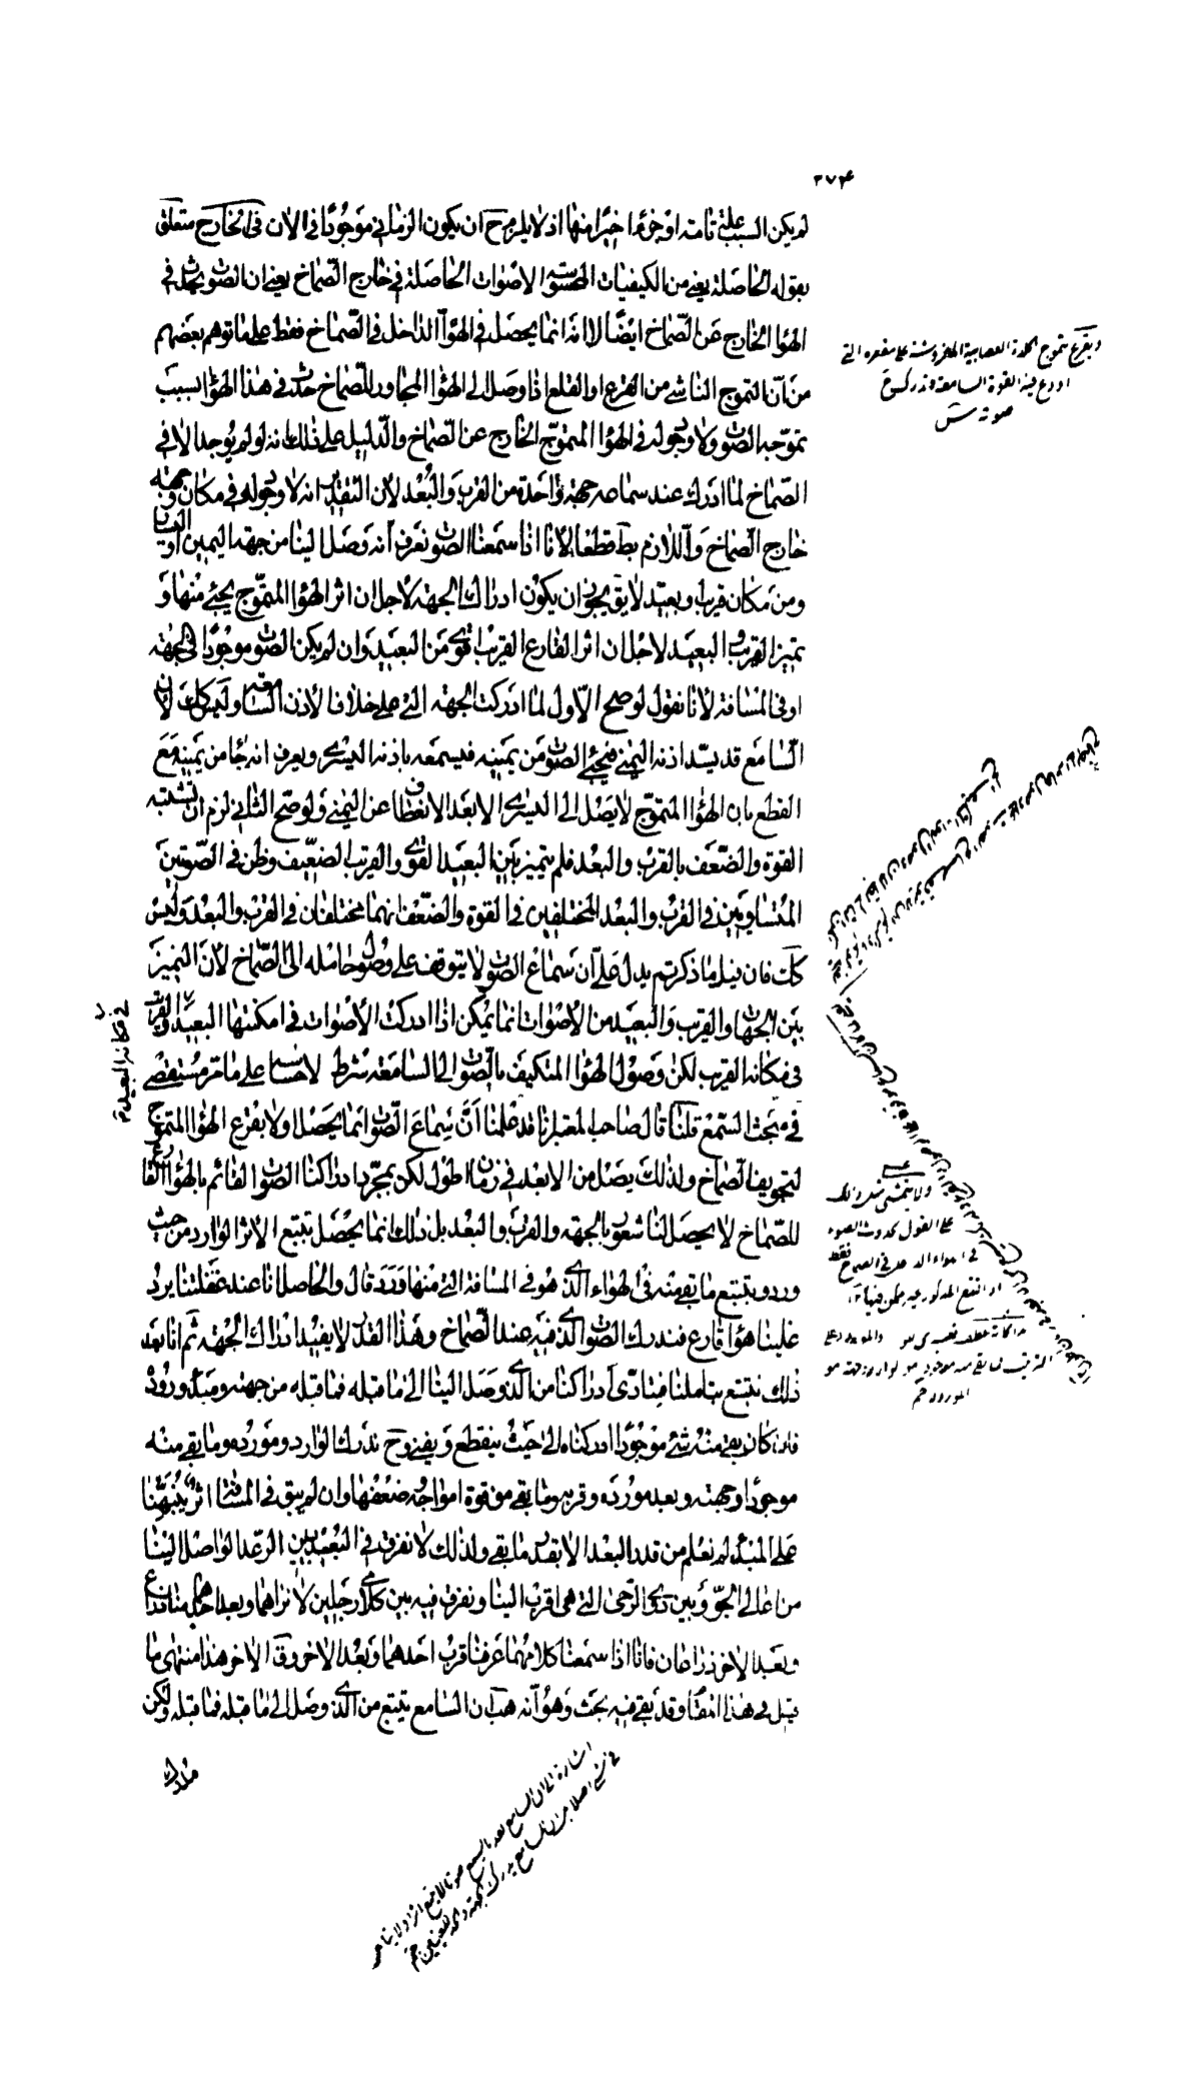 ٢٧۴
لم يكن السبب علة تامة او جزءا اخيرا منها اذ لا يلزم ح ان يكون الزماني موجودا في الان في الخارج متعلق
بقوله الحاصلة يعني من الكيفيات المحسوسة الاصوات الحاصلة في خارج الصماخ يعني ان الصوت يحصل في
الهواء الخارج عن الصماخ ايضا لا انه انما يحصل في الهواء الداخل في الصماخ فقط على ما توهم بعضهم
من ان التموج الناشي من القرع او القلع اذا وصل الى الهواء المجاور للصماخ حدث في هذا الهواء بسبب
تموجه الصوت ولا وجود له في الهواء المتموج الخارج عن الصماخ والدليل على ذلك انه لو لم يوجد الا في
الصماخ لما ادرك عند سماعه جهته واحدة من القرب والبعد لان التقدير انه لا وجود له في مكان وجهة
خارج الصماخ واللازم بط قطعا لانا اذا سمعنا الصوت نعرف انه وصل الينا من جهة اليمين او اليسار
ومن مكان قريب او بعيد لا يق يجوز ان يكون ادراك الجهة لاجل ان اثر الهواء المتموج يجئ منها و
تميز القريب والبعيد لاجل ان اثر القارع القريب اقوى من البعيد وان لم يكن الصوت موجودا في الجهة
او في المسافة لانا نقول لو صح الاول لما ادركت الجهة التي على خلاف الاذن السامعة وليس كك لان
السامع قد يسد اذنه اليمنى فيجئ الصوت من يمينه فيسمعه باذنه اليسرى ويعرف انه جاء من يمينه مع
القطع بان الهواء المتموج لا يصل الى اليسرى الا بعد الانعطاف عن اليمنى ولو صح الثاني لزم ان تشتبه
القوة والضعف بالقرب والبعد فلم يتميز بين البعيد القوي والقريب الضعيف وظن في الصوتين
المتساويين في القرب والبعد المختلفين في القوة والضعف انهما مختلفان في القرب والبعد وليس
كك فان قيل ما ذكرتم يدل على ان سماع الصوت لا يتوقف على وصول حامله الى الصماخ لان التميز
بين الجهات والقريب والبعيد من الاصوات انما يمكن اذا ادركت الاصوات في امكنتها البعيد والقريب
في مكانه القريب لكن وصول الهواء المتكيف بالصوت الى السامعة شرط لاحساسه على ما مر مستقصى
في مبحث السمع قلنا قال صاحب المعتبر انا قد علمنا ان سماع الصوت انما يحصل اولا بقرع الهواء المتموج
لتجويف الصماخ ولذلك يصل من الابعد في زمان اطول لكن بمجرد ادراكنا الصوت القائم بالهواء القارع
للصماخ لا يحصل لنا شعور بالجهة والقرب والبعد بل ذلك انما يحصل بتتبع الاثر الوارد من حيث
ورد وبتتبع ما بقي منه في الهواء الذي هو في المسافة التي منها ورد قال والحاصل انا عند غفلتنا يرد
علينا هواء قارع فندرك الصوت الذي فيه عند الصماخ وهذا القدر لا يفيد ادراك الجهة ثم انا بعد
ذلك نتتبع بتاملنا فيتادى ادراكنا من الذي وصل الينا الى ما قبله فما قبله من جهته ومبدء وروده
فان كان بقي منه شئ موجودا ادركناه الى حيث ينقطع ويفنى وح ندرك الوارد ومورده وما بقي منه
موجودا وجهته وبعد مورده وقربه وما بقي من قوة امواجه وضعفها وان لم يبق في المسافة اثر ينبهنا
على المبدء لم نعلم من قدر البعد الا بقدر ما بقي ولذلك لا نفرق في البعيد بين الرعد الواصل الينا
من اعالي الجو وبين دوي الرحى التي هي اقرب الينا ونفرق فيه بين كلامي رجلين لا نراهما وبعد احدهما منا ذراع
وبعد الاخر ذراعان فانا اذا سمعنا كلامهما عرفنا قرب احدهما وبعد الاخر وق الاخر هذا منتهى ما
قيل في هذا المقام وقد بقي فيه بحث وهو انه هب ان السامع يتتبع من الذي وصل الى ما قبله فما قبله ولكن
في مكانه البعيد م
ويقرع بتموج الجلدة العصابية المفروشة على مقعره التي
اودع فيه القوة السامعة
صوته ش
ولا يتمشى مثل ذلك
على القول بحدوث الصوت
في الهواء الداخل في الصماخ فقط
اشارة الى ان السامع